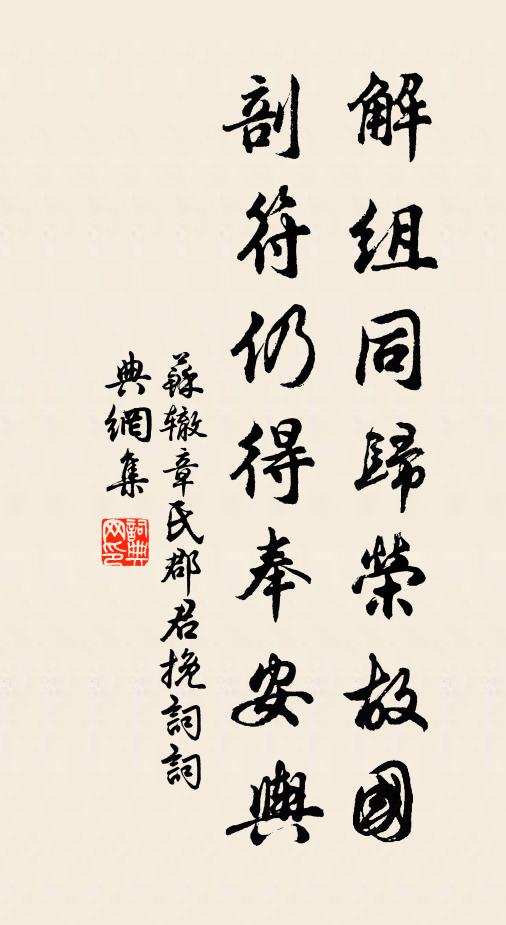 解組同歸榮故國
剖符仍得奉安輿
蘇轍章氏郡君挽詞詞
典網集
詞典網印